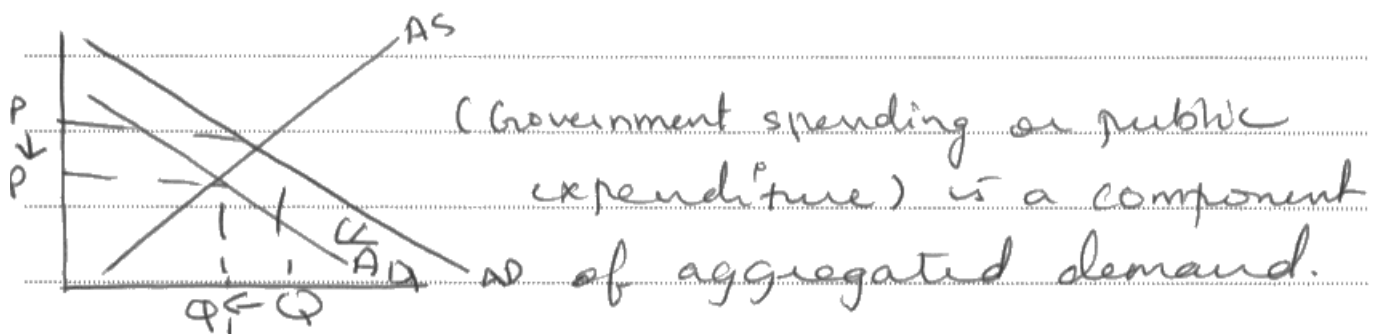 AS
P
(Government spending or public
P
expenditure) is a component
AD
AD
of aggregated demand.
Q1
Q